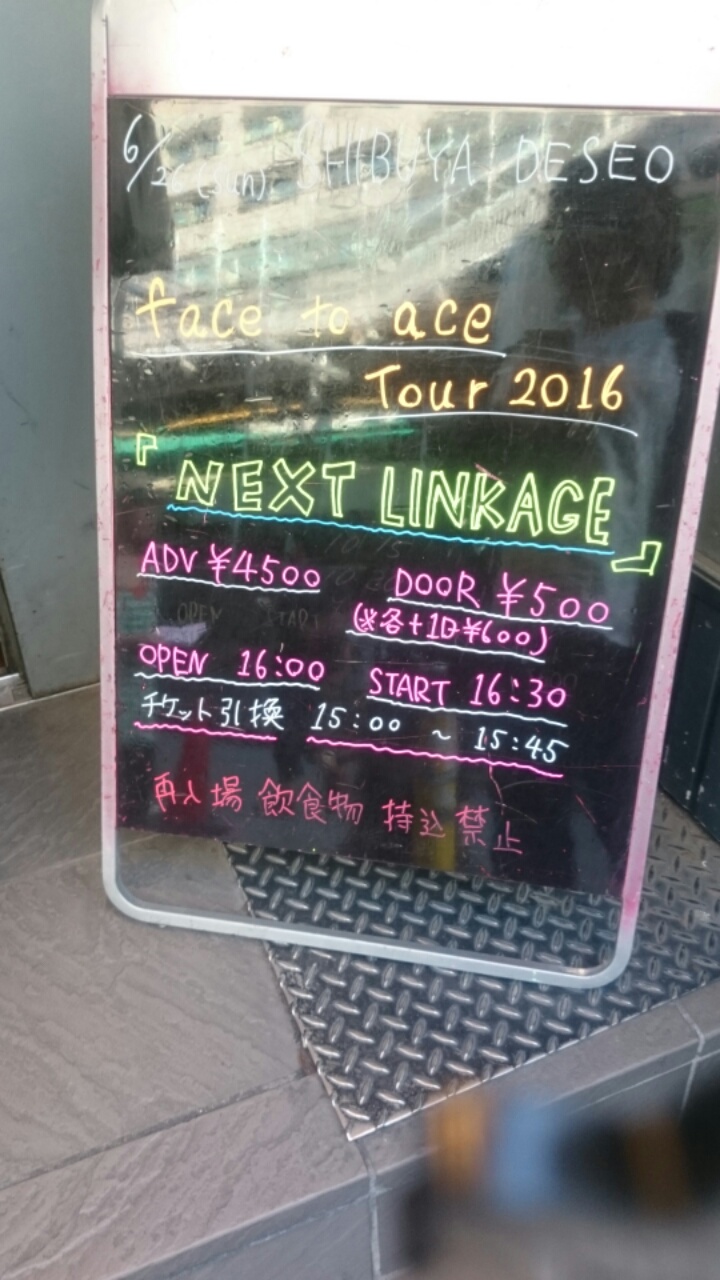 6/26 (sun) SHIBUYA DESEO
face to ace
Tour 2016
『NEXT LINKAGE』
ADV ¥4500 DOOR ¥500
(※各+1D¥600)
OPEN 16:00 START 16:30
チケット引換 15:00 ~ 15:45
再入場 飲食物 持込 禁止